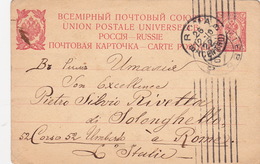 ВСЕМІРНЫЙ ПОЧТОВЫЙ СОЮЗЪ
UNION POSTALE UNIVERSELLE
РОССІЯ – RUSSIE
ПОЧТОВАЯ КАРТОЧКА – CARTE POSTALE
Son Excellence
Pietro Silvio Rivetta
de Solonghello
52 Corso 52 Umberto à Rome
L'Italie